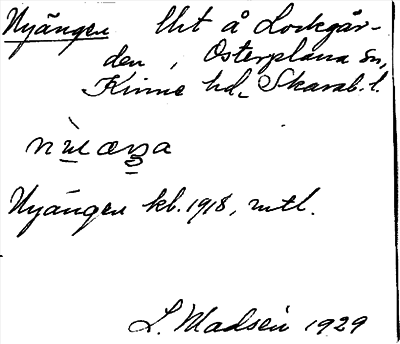 Nyängen lht å Lockgår-
den, Österplana sn,
Kinne hd, Skarab. l.
Nyängen kb. 1918, mtl.
L. Madsen 1929